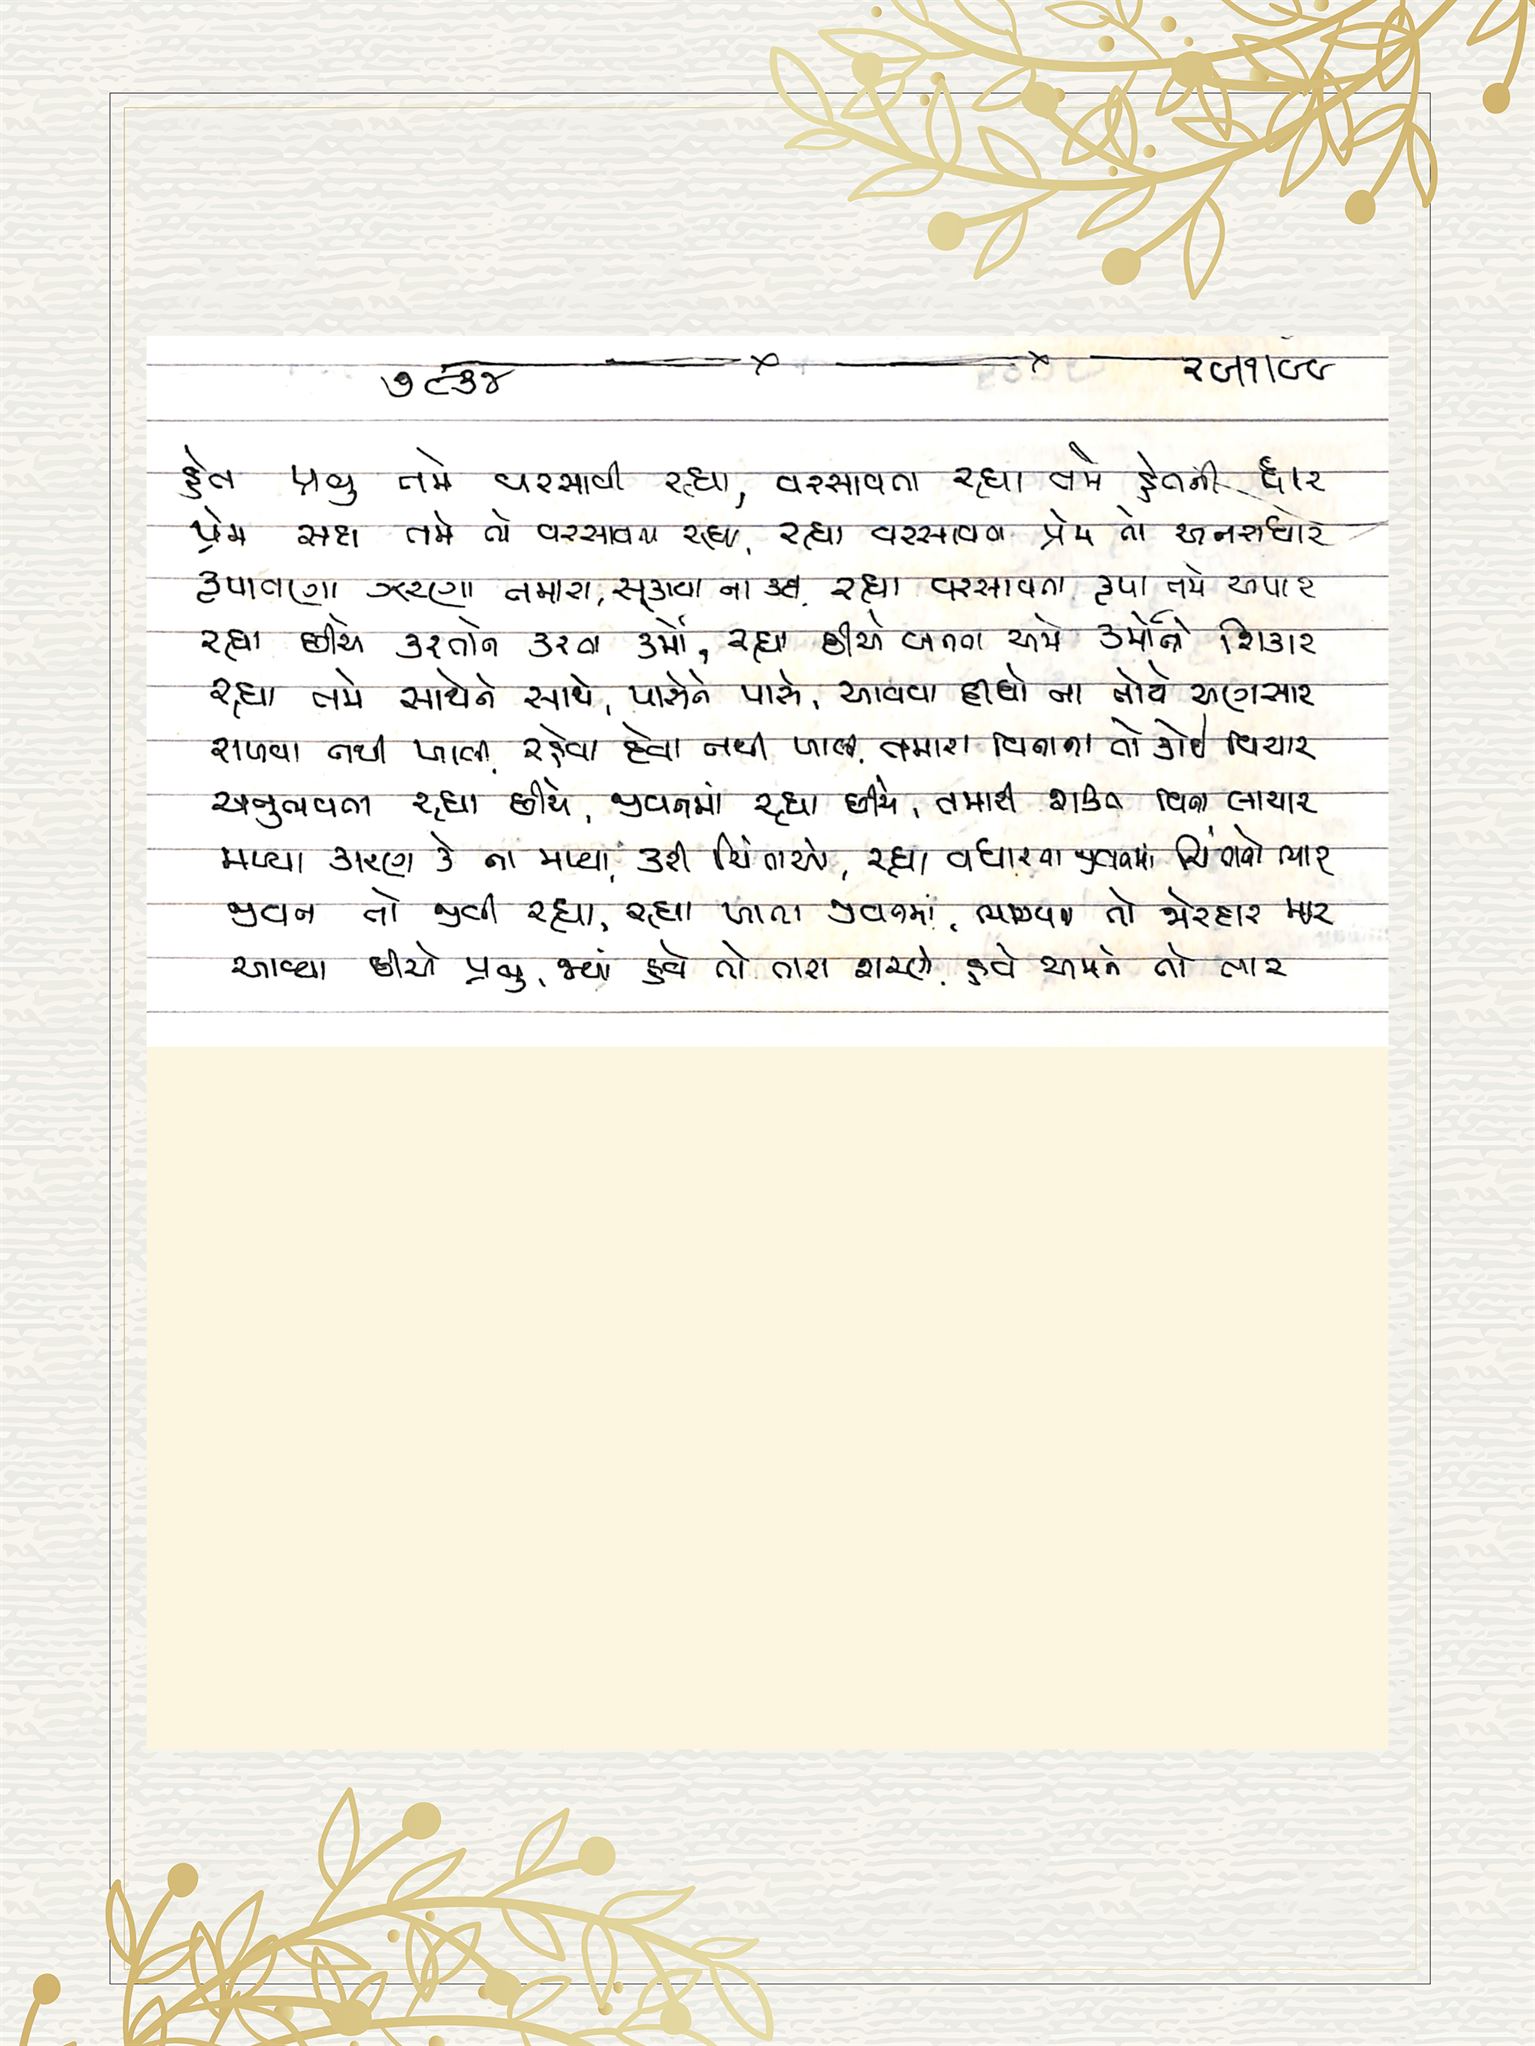 ૭૯૩૪
હેત પ્રભુ તમે વરસાવી રહ્યા, વરસાવતા રહ્યા તમે હેતની ધાર
પ્રેમ સદા તમે તો વરસાવતા રહ્યા, રહ્યા વરસાવતા પ્રેમ તો અનરાધાર
કૃપાતણા ઝરણા તમારા, સૂકાવા ના દીધા, રહ્યા વરસાવતા કૃપા તમે અપાર
રહ્યા છીએ કરતોને કરતા કર્મો, રહ્યા છીએ બનતા અમે કર્મોનો શિકાર
રહ્યા તમે સાથેને સાથે, પાસેને પાસે, આવવા દીધો ના તોયે અણસાર
રાખવા નથી ખાલી, રહેવા દેવા નથી ખાલી, તમારા વિનાના તો કોઈ વિચાર
અનુભવતા રહ્યા છીએ, જીવનમાં રહ્યા છીએ, તમારી શક્તિ વિના લાચાર
મળ્યા કારણ કે ના મળ્યા, કરી ચિંતાઓ, રહ્યા વધારતા જીવનમાં ચિંતાનો ભાર
જીવન તો જીવી રહ્યા, રહ્યા ખાતા જીવનમાં, ભાગ્યના તો જોરદાર માર
આવ્યા છીએ પ્રભુ, જ્યાં હવે તો તારા શરણે, હવે અમને તો તાર